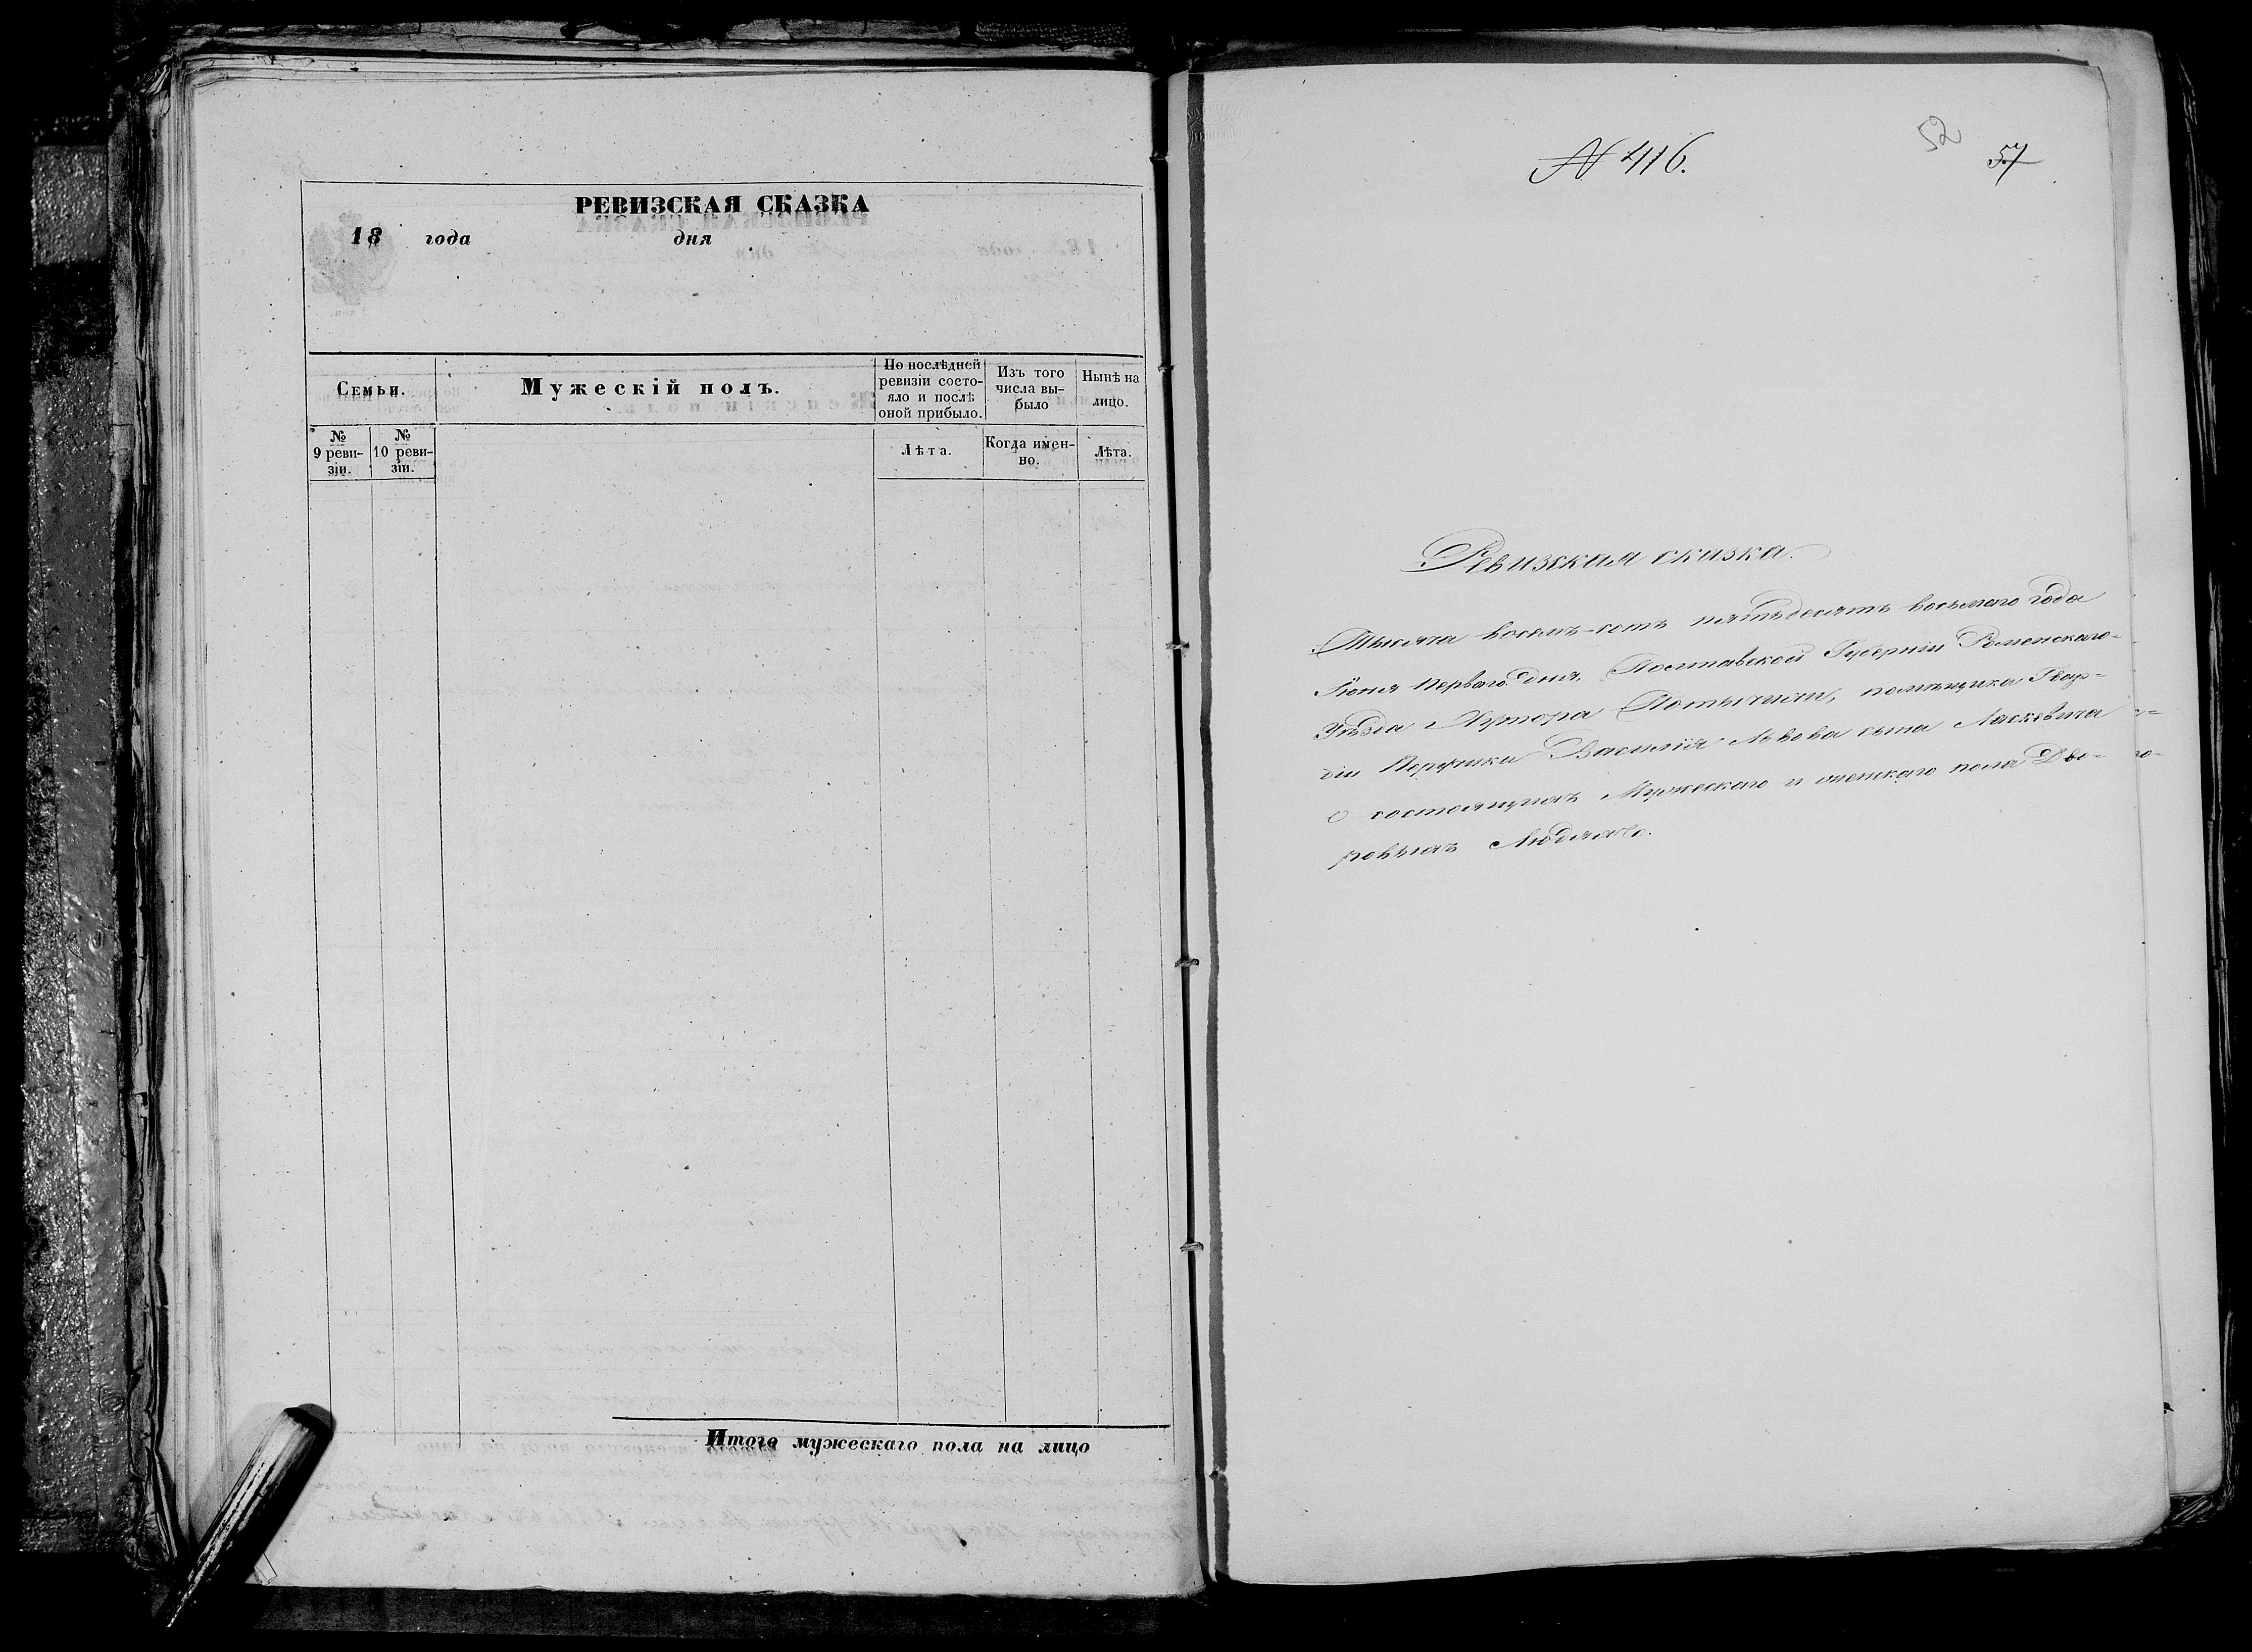 РЕВИЗСКАЯ СКАЗКА
18 года дня
Семьи.
Мужескій полъ.
По послѣдней ревизіи состо-
яло и послѣ оной прибыло.
Изъ того числа вы-
было
Нынѣ на лицо.
№ 9 реви-
зіи.
№ 10 реви-
зіи.
Лѣта.
Когда имен-
но.
Лѣта.
Итого мужескаго пола на лицо
№ 416.
52
57
Ревизская сказка.
Тысяча восемь-сотъ пятьдесятъ восьмаго года
Іюня Перваго дня, Полтавской Губерніи Роменскаго
Уѣзда Хутора помѣщика Гвар-
діи Поручика Василія Львова сына Ласкевича
о состоящихъ Мужескаго и женскаго пола Дво-
ровыхъ Людяхъ.